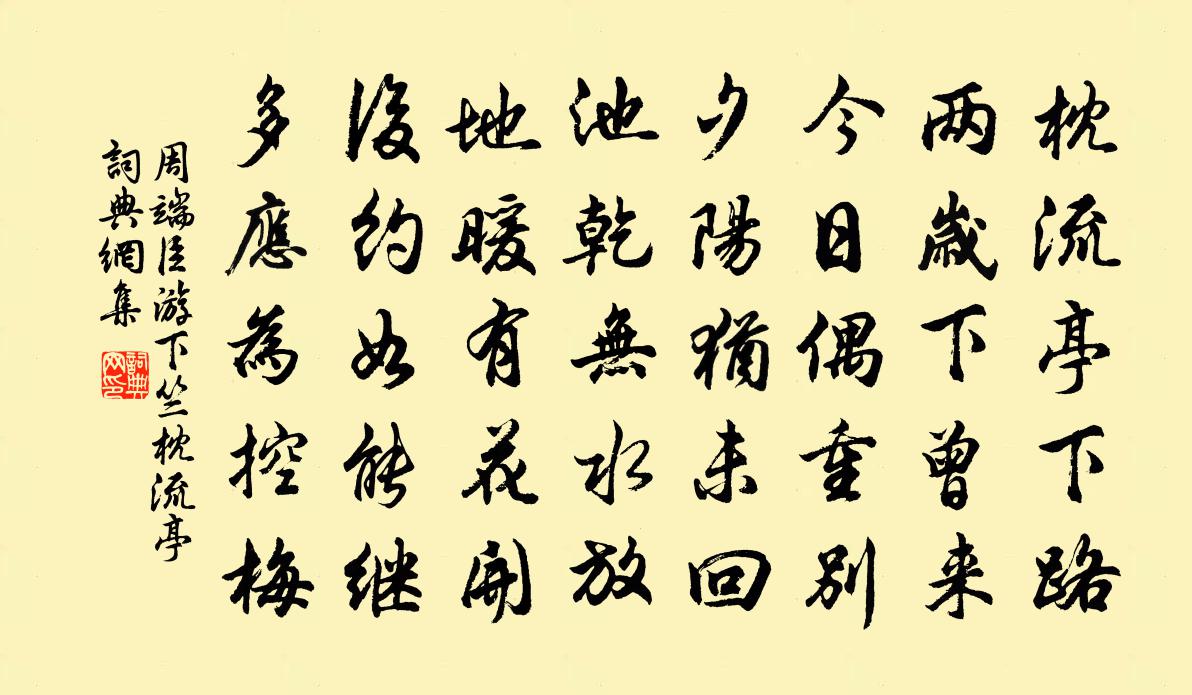 枕流亭下路
两歲下曾来
今日偶重別
夕陽猶未回
池乾無水放
地暖有花開
後約如能继
多應為控梅
周端臣游下竺枕流亭
詞典網集
詞典网印